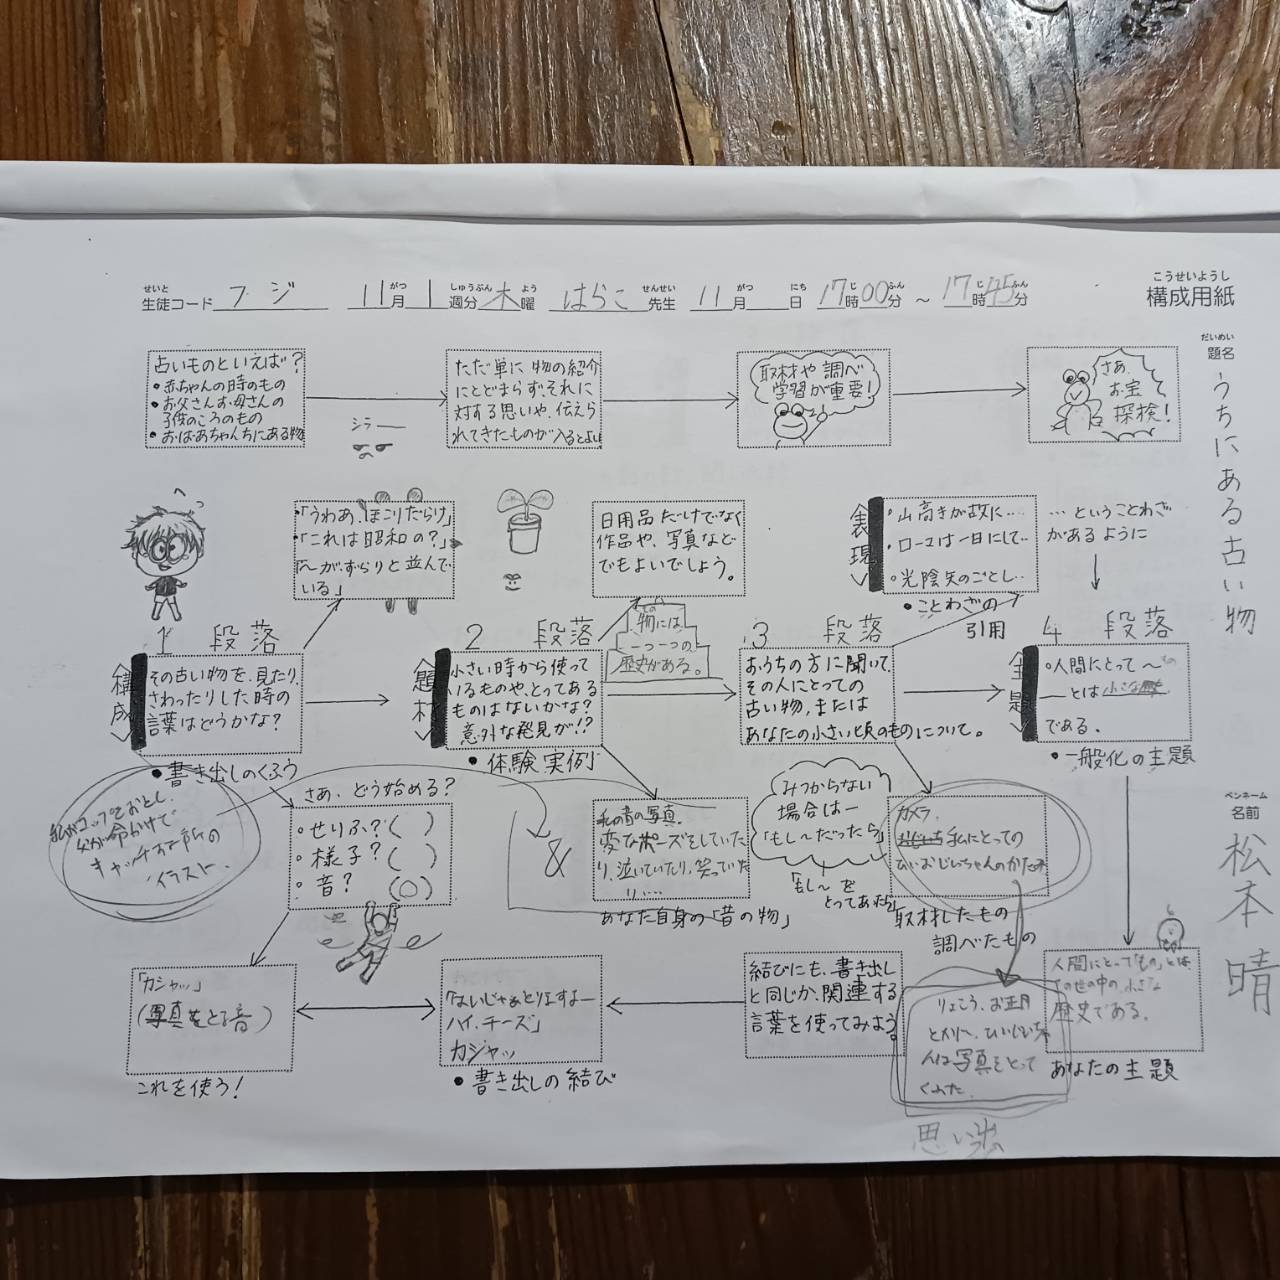 構成用紙
こうせいようし
生徒コード フジ 11月 1週分 木曜 はらこ先生 11月 日 17時00分 ~ 17時45分
題名
だいめい
うちにある古い物
ペンネーム
名前
松本晴
占いものといえば?
・赤ちゃんの時のもの
・お父さんお母さんの
子供のころのもの
・おばあちゃんちにある物
ただ単に物の紹介
にとどまらず、それに
対する思いや、伝えら
れてきたものが入るとよい
取材や調べ
学習が重要!
さあ、
お宝
探検!
シラー
「うわあ、ほこりだらけ」
「これは昭和の?」
「~がずらりと並んで
いる」
日用品だけでなく
作品や、写真など
でもよいでしょう。
《表現》
・山高きが故に……
・ローマは一日にして‥
・光陰矢のごとし‥
・ことわざの
引用
…ということわざ
があるように
1 段落
《構成》
その古い物を、見たり、
さわったりした時の
言葉はどうかな?
・書き出しのくふう
2 段落
《題材》
小さい時から使って
いるものや、とってある
ものはないかな?
意外な発見が!?
・体験実例
その
物には
一つ一つの
歴史がある。
3 段落
おうちの方に聞いて、
その人にとっての
古い物、または
あなたの小さい頃のものについて。
4 段落
《主題》
・人間にとって~
―とは
である。
・一般化の主題
私がコップをおとし、
父が命がけで
キャッチする所の
イラスト.
さあ、どう始める?
・せりふ?( )
・様子?( )
・音? (○)
&
私の昔の写真.
変なポーズをしていた
り、泣いていたり、笑っていた
り……
あなた自身の「昔の物」
みつからない
場合は―
「もし~だったら」
「もし~を
とってあれば」
カメラ.
私にとっての
ひいおじいちゃんのかたみ
取材したもの
調べたもの
「カシャッ」
(写真をとる音)
これを使う!
「はいじゃあとりますよー
ハイ、チーズ」
カシャッ
・書き出しの結び
結びにも、書き出し
と同じか、関連する
言葉を使ってみよう。
りょこう、お正月
写真をとって
くれた.
人間にとって「もの」とは、
この世の中の小さな
歴史である。
あなたの主題
思い出